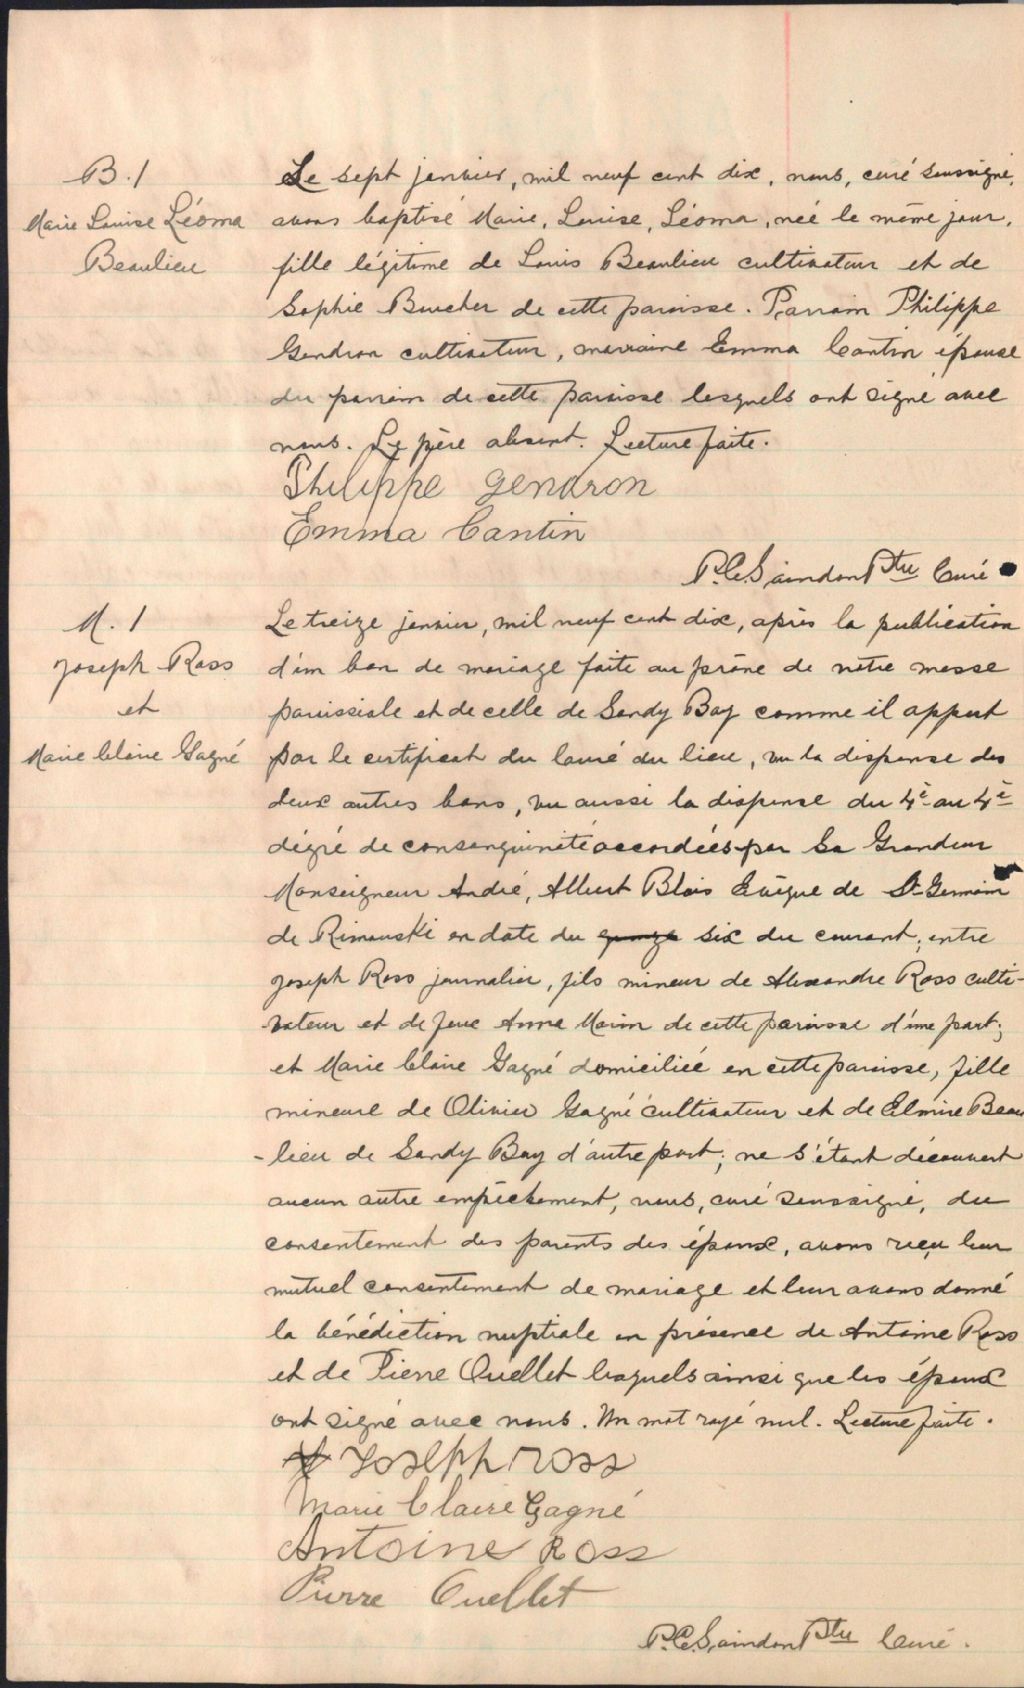 B. 1
Marie Louise Léoma
Beaulieu
Le sept janvier, mil neuf cent dix, nous, curé soussigné,
avons baptisé Marie, Louise, Léoma, née le même jour,
fille légitime de Louis Beaulieu cultivateur et de
Sophie Boucher de cette paroisse. Parrain Philippe
Gendron cultivateur, marraine Emma Cantin épouse
du parrain de cette paroisse lesquels ont signé avec
nous. Le père absent. Lecture faite.
Philippe Gendron
Emma Cantin
P.C. Saindon Ptre Curé
M. 1
Joseph Ross
et
Marie Claire Gagné
Le treize janvier, mil neuf cent dix, après la publication
d'un ban de mariage faite au prône de notre messe
paroissiale et de celle de Sandy Bay comme il appert
par le certificat du Curé du lieu, vu la dispense des
deux autres bans, vu aussi la dispense du 4è au 4è
dégré de consanguinité accordées par Sa Grandeur
Monseigneur André, Albert Blais Evêque de St-Germain
de Rimouski en date du quinze six du courant; entre
Joseph Ross journalier, fils mineur de Alexandre Ross culti-
vateur et de feue Anna Morin de cette paroisse d'une part;
et Marie Claire Gagné domiciliée en cette paroisse, fille
mineure de Olivier Gagné cultivateur et de Elmire Beau
-lieu de Sandy Bay d'autre part; ne s'étant découvert
aucun autre empêchement, nous, curé soussigné, du
consentement des parents des époux, avons reçu leur
mutuel consentement de mariage et leur avons donné
la bénédiction nuptiale en présence de Antoine Ross
et de Pierre Ouellet lesquels ainsi que les époux
ont signé avec nous. Un mot rayé nul. Lecture faite.
Joseph Ross
Marie Claire Gagné
Antoine Ross
Pierre Ouellet
P.C. Saindon Ptre Curé.